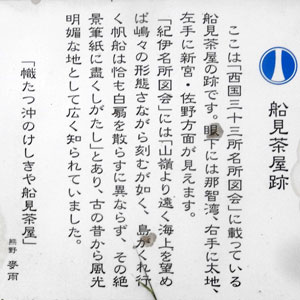 船見茶屋跡
ここは「西国三十三所名所図会」に載っている
船見茶屋の跡です。眼下には那智湾、右手に太地、
左手に新宮・佐野方面が見えます。
「紀伊名所図会」には「山嶺より遠く海上を望め
ば嶋々の形態さながら刻むが如く、島がくれ行
く帆船は恰も白鷺を散らすに異ならず、その絶
景筆紙に盡くしがたし」とあり、古の昔から風光
明媚な地として広く知られていました。
「幟たつ沖のけしきや船見茶屋」
熊野 麥雨